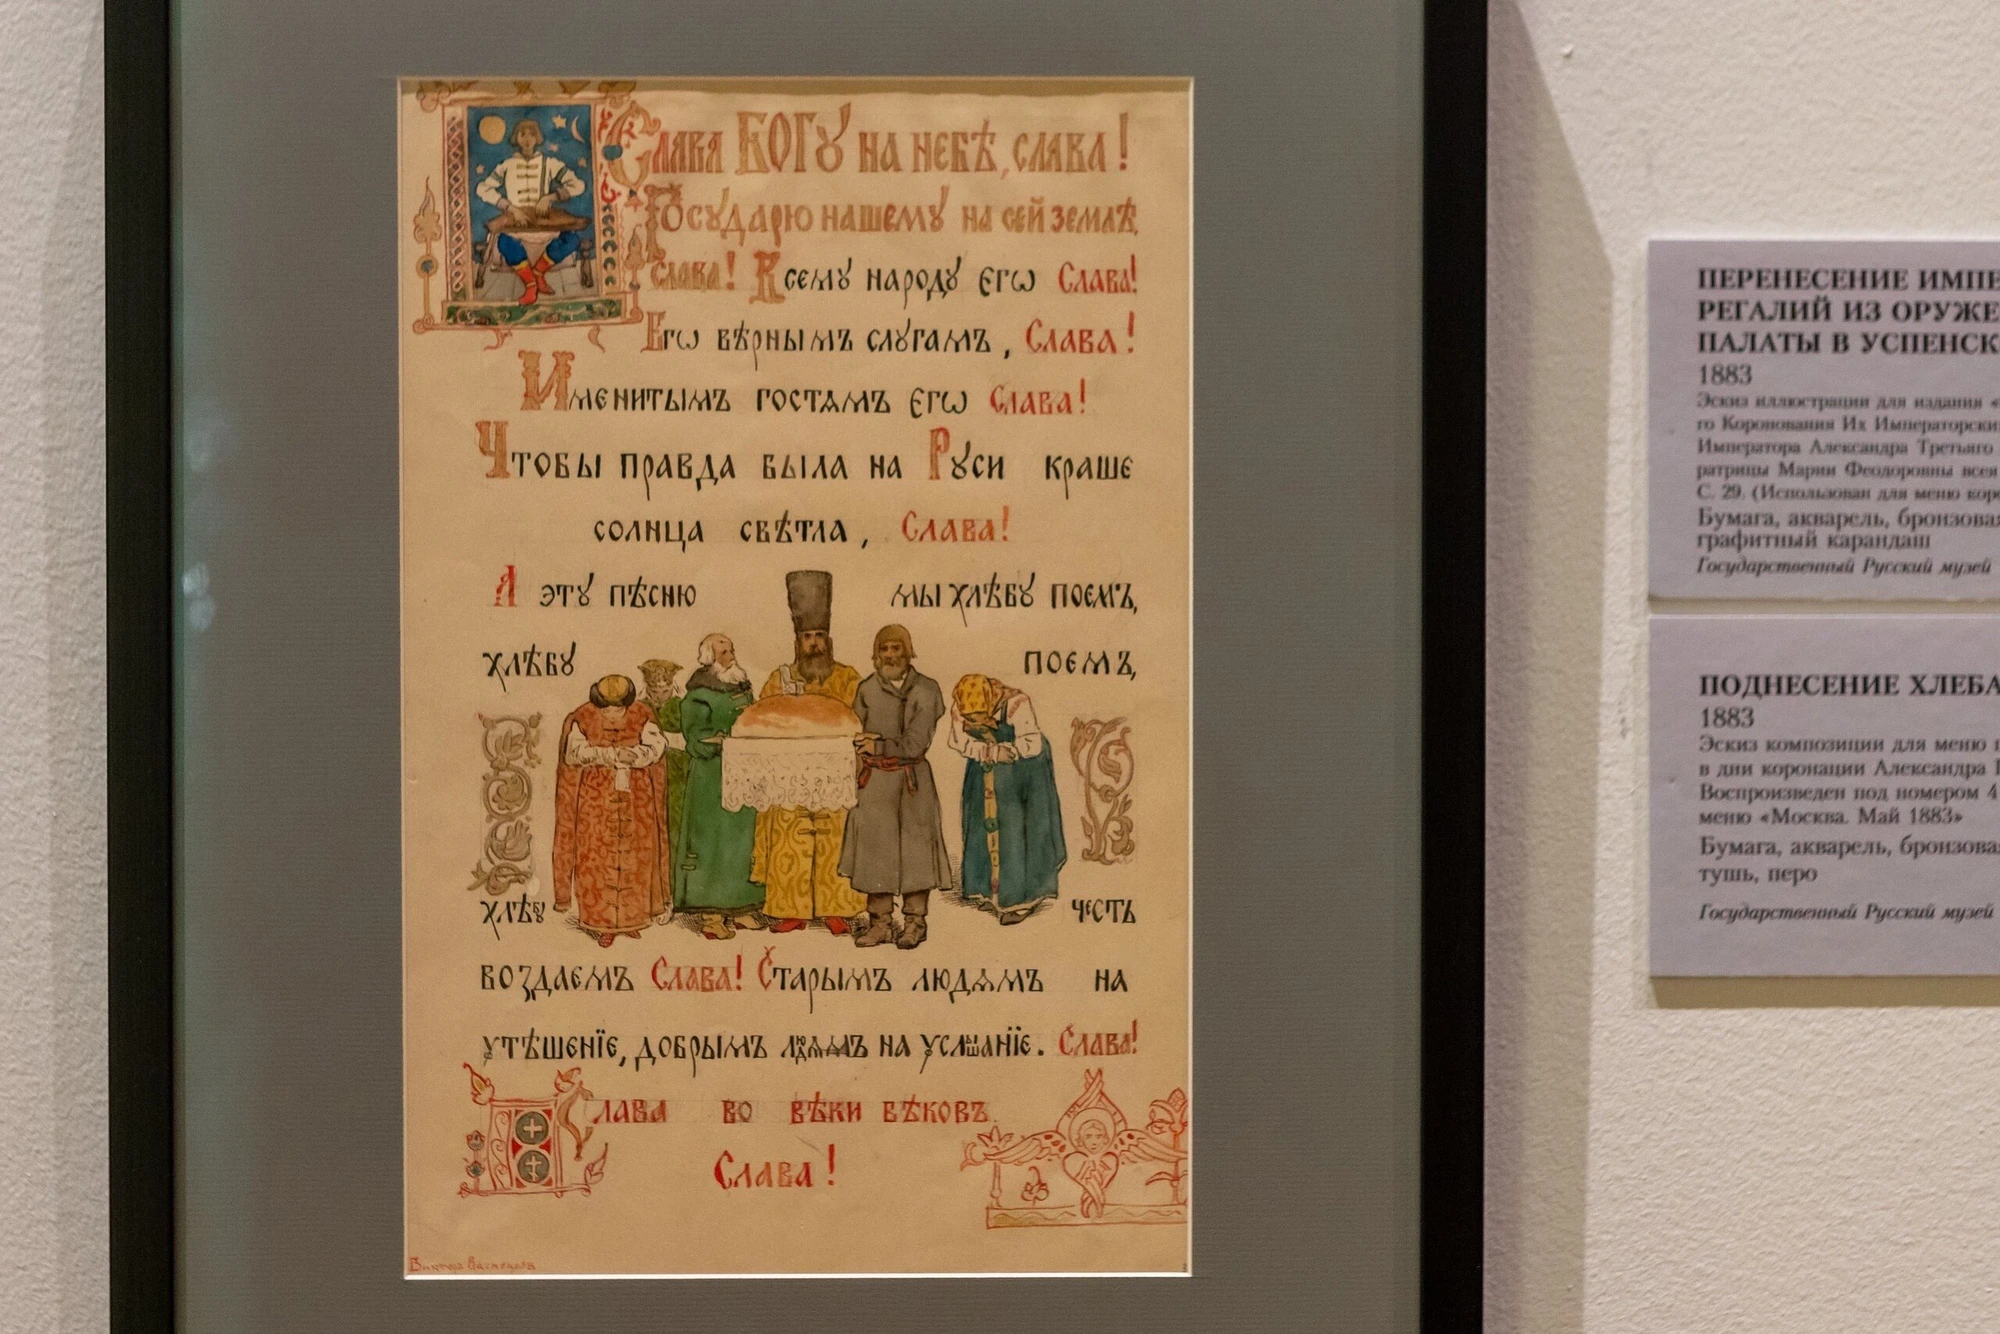 Слава БОГꙋ на небѣ, слава!
Государю нашемꙋ на сей землѣ,
слава! Всемꙋ народꙋ егѡ Слава!
Егѡ вѣрнымъ слꙋгамъ, Слава!
Именитымъ гостѧмъ егѡ Слава!
Чтобы правда была на Рꙋси краше
солнца свѣтла, Слава!
А этꙋ пѣсню мы хлѣбꙋ поемъ,
хлѣбꙋ поемъ,
хлѣбꙋ честь
воздаемъ Слава! Старымъ людѧмъ на
утѣшенїе, добрымъ людѧмъ на услышанїе. Слава!
Слава во вѣки вѣковъ
Слава!
Викторъ Васнецовъ
ПЕРЕНЕСЕНИЕ ИМПЕ
РЕГАЛИЙ ИЗ ОРУЖЕ
ПАЛАТЫ В УСПЕНСК
1883
Эскиз иллюстрации для издания «
го Коронования Их Императорски
Императора Александра Третьего
ратрицы Марии Феодоровны всея
С. 29. (Использован для меню коро
Бумага, акварель, бронзовая
графитный карандаш
Государственный Русский музей
ПОДНЕСЕНИЕ ХЛЕБА
1883
Эскиз композиции для меню
в дни коронации Александра
Воспроизведен под номером 4
меню «Москва. Май 1883»
Бумага, акварель, бронзовая
тушь, перо
Государственный Русский музей